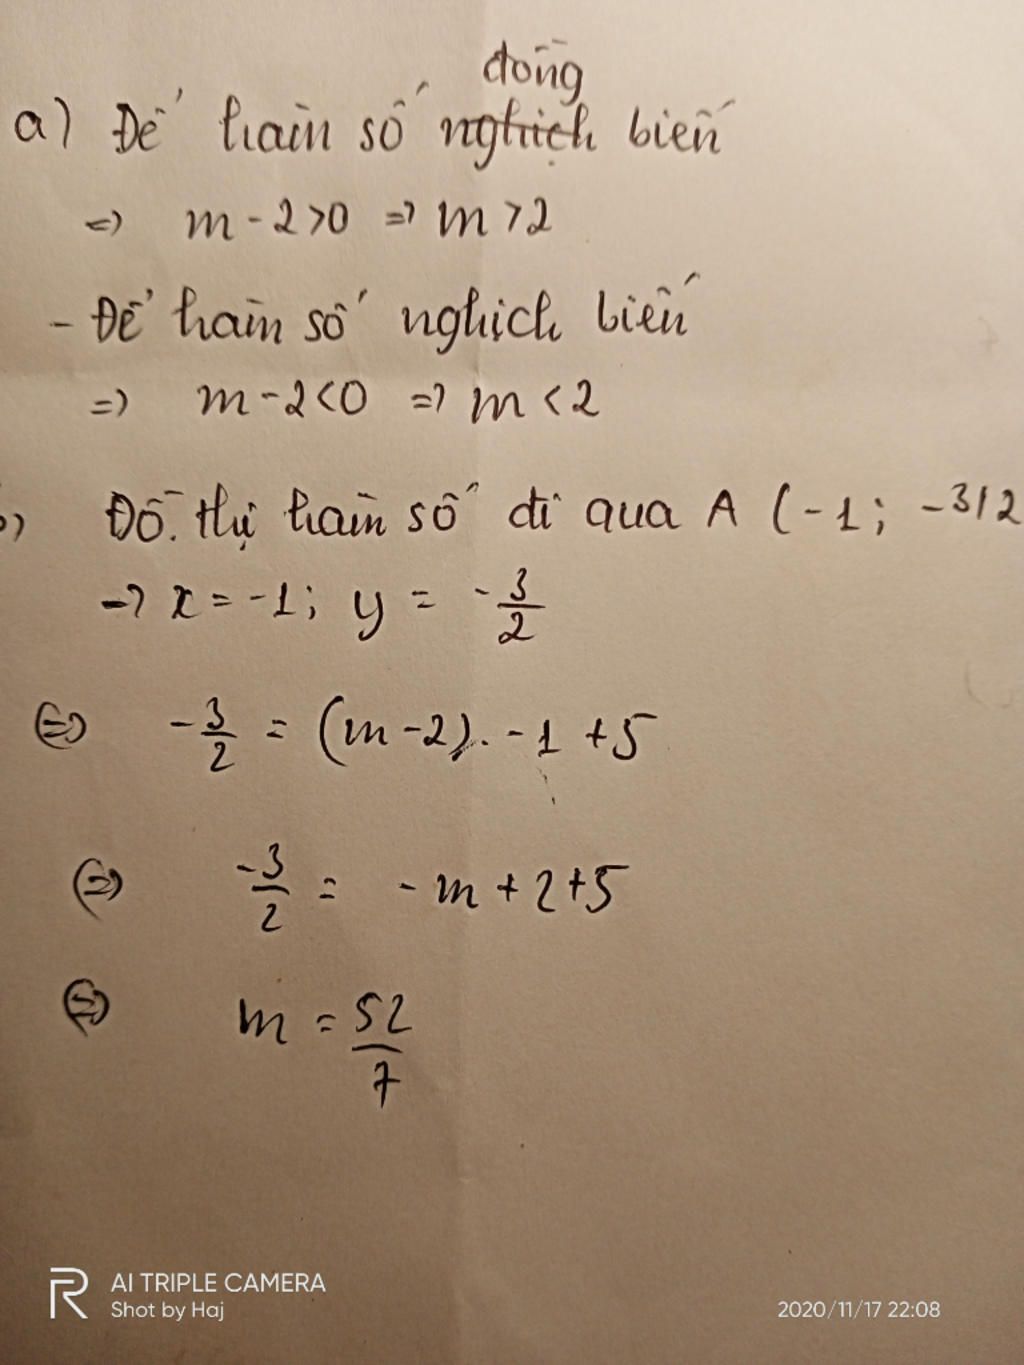 đồng
a) Để hàm số nghịch biến
=> m - 2 > 0 => m > 2
- Để hàm số nghịch biến
=> m - 2 < 0 => m < 2
b) Đồ thị hàm số đi qua A (-1; -3/2
-> x = -1; y = -3/2
<=> -3/2 = (m - 2). -1 + 5
<=> -3/2 = -m + 2 + 5
<=> m = 52/7
AI TRIPLE CAMERA
Shot by Haj
2020/11/17 22:08